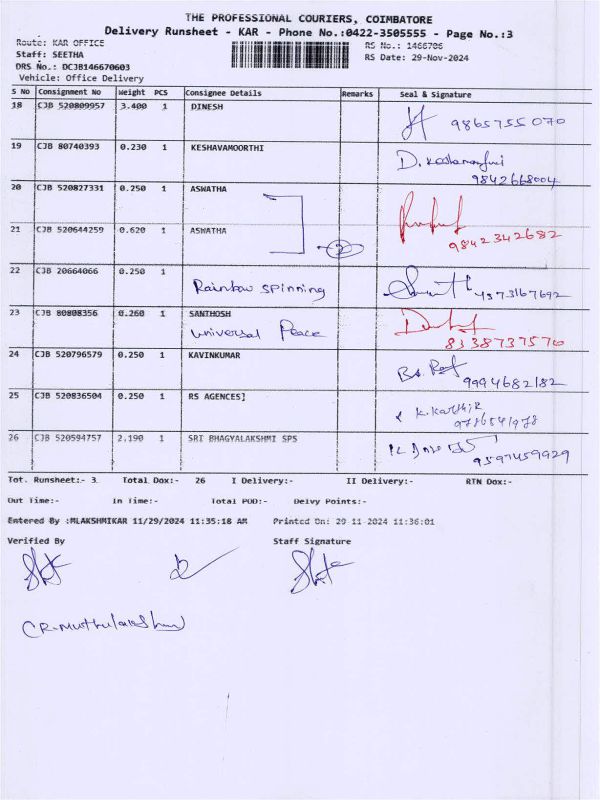 THE PROFESSIONAL COURIERS, COIMBATORE
Delivery Runsheet - KAR - Phone No.:0422-3505555 - Page No.:3
Route: KAR OFFICE RS No.: 1466706
Staff: SEETHA RS Date: 29-Nov-2024
DRS No.: DCJB146670603
Vehicle: Office Delivery
S No Consignment No Weight PCS Consignee Details Remarks Seal & Signature
18 CJB 520809957 3.400 1 DINESH 9865755070
19 CJB 80740393 0.230 1 KESHAVAMOORTHI
9842668004
20 CJB 520827331 0.250 1 ASWATHA
21 CJB 520644259 0.620 1 ASWATHA 9842342682
2
22 CJB 20664066 0.250 1
Rainbow spinning
23 CJB 80808356 0.260 1 SANTHOSH
universal Peace
24 CJB 520796579 0.250 1 KAVINKUMAR
9994682182
25 CJB 520836504 0.250 1 RS AGENCES] K. Karthik
26 CJB 520594757 2.190 1 SRI BHAGYALAKSHMI SPS
9597459929
Tot. Runsheet:- 3 Total Dox:- 26 I Delivery:- II Delivery:- RTN Dox:-
Out Time:- In Time:- Total POD:- Delvy Points:-
Entered By :MLAKSHMIKAR 11/29/2024 11:35:18 AM Printed On: 29-11-2024 11:36:01
Verified By Staff Signature